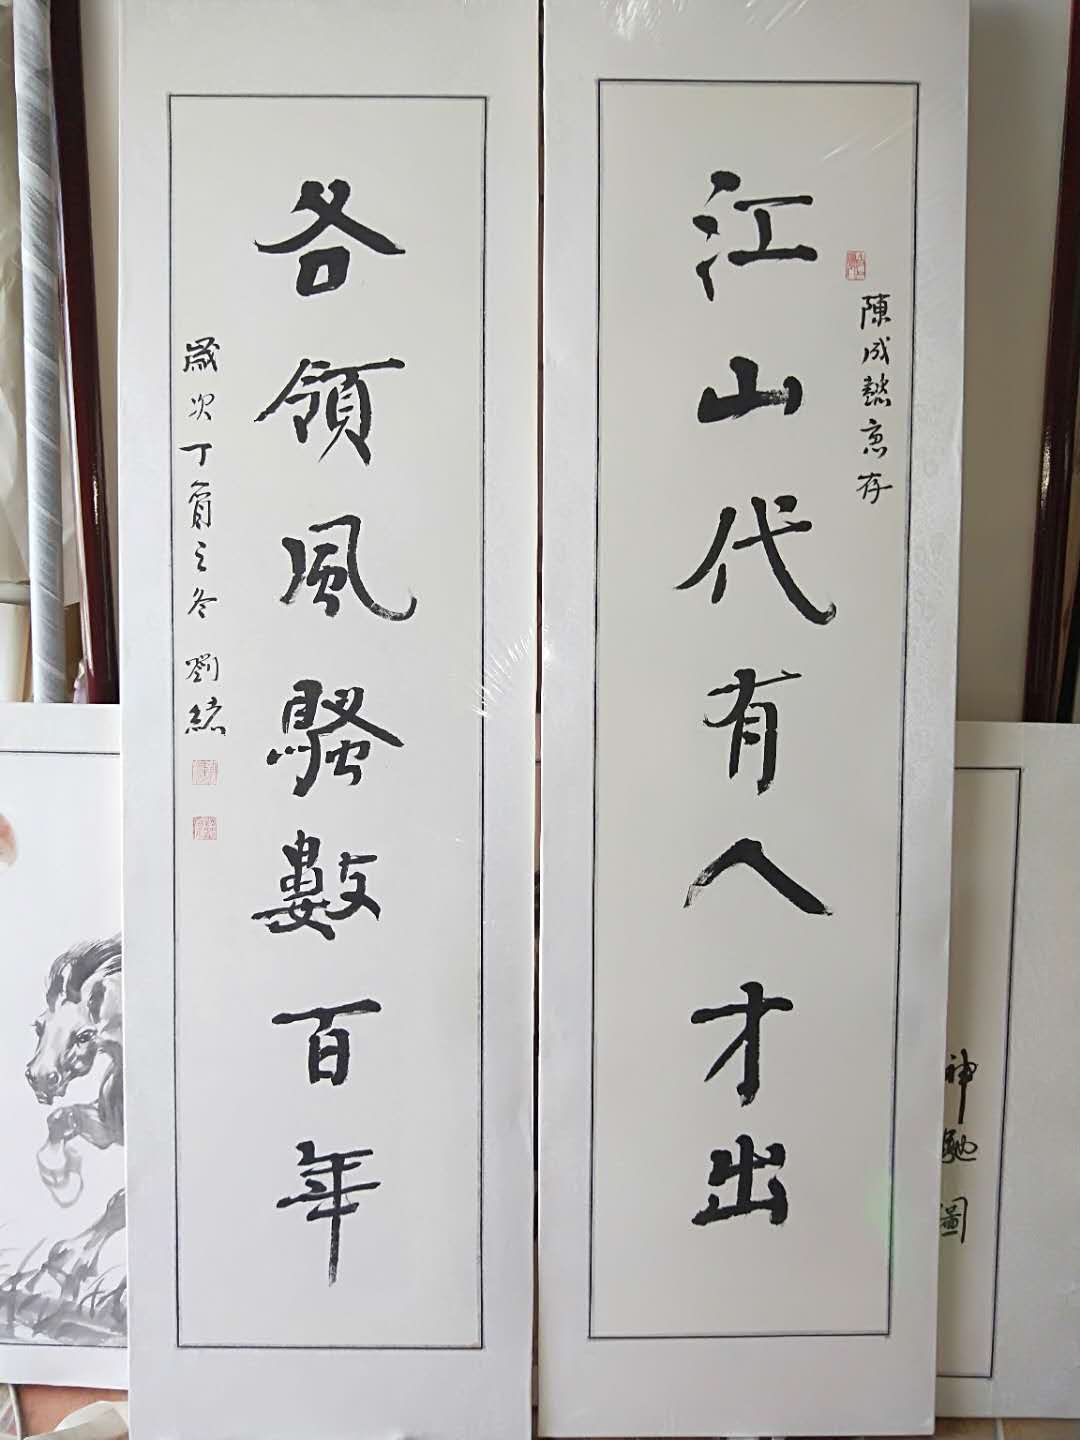 神馳圖
陳成懿惠存
江山代有人才出
各領風騷數百年
歲次丁之冬 劉